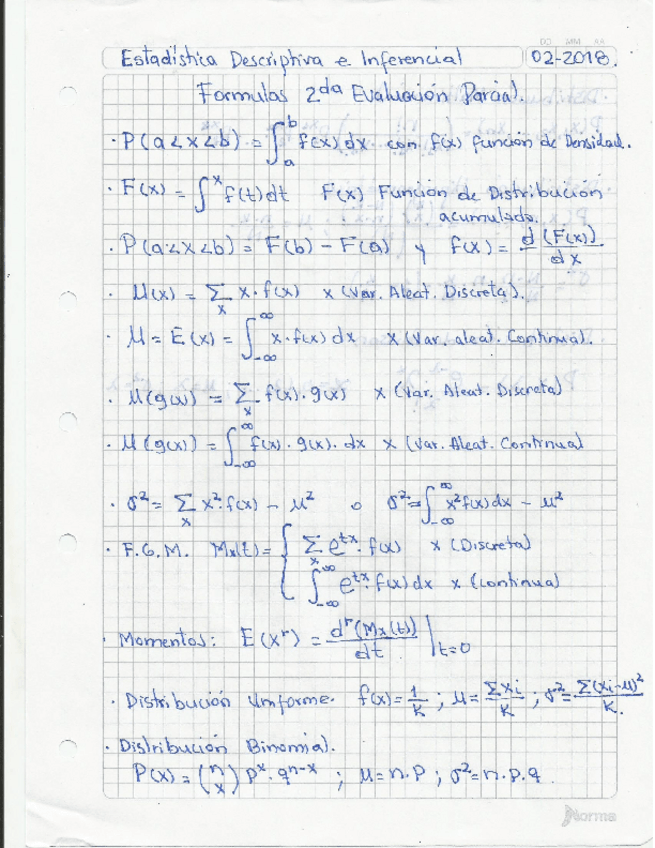 Estadística Descriptiva e Inferencial 02-2018.
Formulas 2da Evaluación Parcial.
· P(a<x<b) = ∫_a^b f(x) dx con f(x) función de Densidad.
· F(x) = ∫^x f(t)dt F(x) Función de Distribución
acumulado.
· P(a<x<b) = F(b) - F(a) y f(x) = d(F(x))/dx
· μ(x) = Σ_x x·f(x) x (Var. Aleat. Discreta).
· μ = E(x) = ∫_{-∞}^{∞} x·f(x) dx x (Var. aleat. Continua).
· μ(g(x)) = Σ_x f(x)·g(x) x (Var. Aleat. Discreta)
· μ(g(x)) = ∫_{-∞}^{∞} f(x)·g(x)·dx x (Var. Aleat. Continua)
· σ² = Σ_x x²·f(x) - μ² o σ² = ∫_{-∞}^{∞} x²f(x)dx - μ²
· F.G.M. Mx(t) = { Σ_x e^{tx}·f(x) x (Discreta)
∫_{-∞}^{∞} e^{tx}·f(x) dx x (continua)
· Momentos: E(x^r) = d^r(Mx(t))/dt |_{t=0}
· Distribución Uniforme. f(x) = 1/K ; μ = Σxi/K ; σ² = Σ(xi-μ)²/K.
· Distribución Binomial.
P(x) = (n x) p^x·q^{n-x} ; μ = n.p ; σ² = n.p.q
Norma